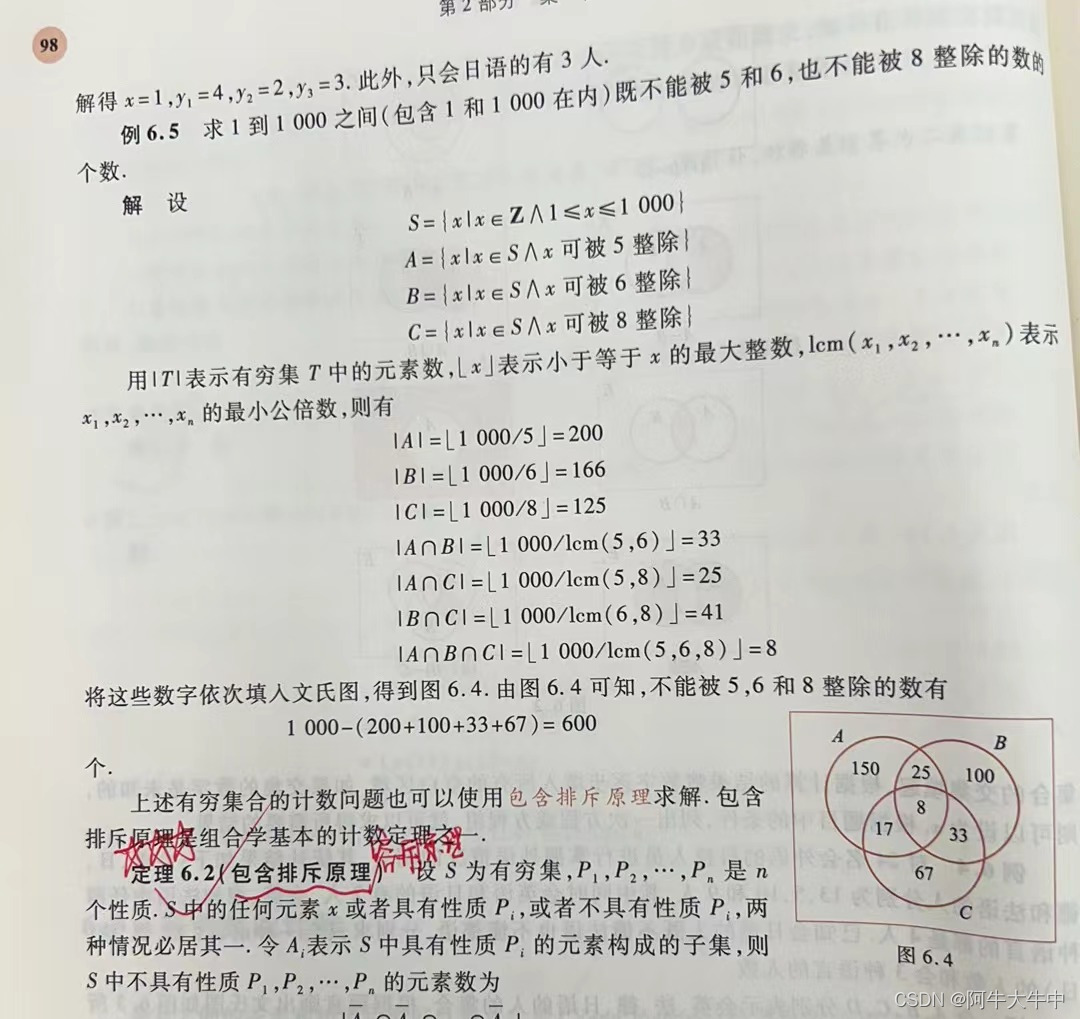 第2部分 集
98
解得 x=1,y₁=4,y₂=2,y₃=3. 此外,只会日语的有 3 人.
例 6.5 求 1 到 1 000 之间(包含 1 和 1 000 在内)既不能被 5 和 6,也不能被 8 整除的数的
个数.
解 设
S={x|x∈Z∧1≤x≤1 000}
A={x|x∈S∧x 可被 5 整除}
B={x|x∈S∧x 可被 6 整除}
C={x|x∈S∧x 可被 8 整除}
用|T|表示有穷集 T 中的元素数,⌊x⌋表示小于等于 x 的最大整数,lcm(x₁,x₂,⋯,xₙ)表示
x₁,x₂,⋯,xₙ 的最小公倍数,则有
|A|=⌊1 000/5⌋=200
|B|=⌊1 000/6⌋=166
|C|=⌊1 000/8⌋=125
|A∩B|=⌊1 000/lcm(5,6)⌋=33
|A∩C|=⌊1 000/lcm(5,8)⌋=25
|B∩C|=⌊1 000/lcm(6,8)⌋=41
|A∩B∩C|=⌊1 000/lcm(5,6,8)⌋=8
将这些数字依次填入文氏图,得到图 6.4. 由图 6.4 可知,不能被 5,6 和 8 整除的数有
1 000-(200+100+33+67)=600
个.
上述有穷集合的计数问题也可以使用包含排斥原理求解. 包含
排斥原理是组合学基本的计数定理之一.
定理 6.2(包含排斥原理) 设 S 为有穷集,P₁,P₂,⋯,Pₙ 是 n
个性质. S 中的任何元素 x 或者具有性质 Pᵢ,或者不具有性质 Pᵢ,两
种情况必居其一. 令 Aᵢ表示 S 中具有性质 Pᵢ 的元素构成的子集,则
S 中不具有性质 P₁,P₂,⋯,Pₙ 的元素数为
A
B
150
25
100
8
17
33
67
C
图 6.4
CSDN @阿牛大牛中